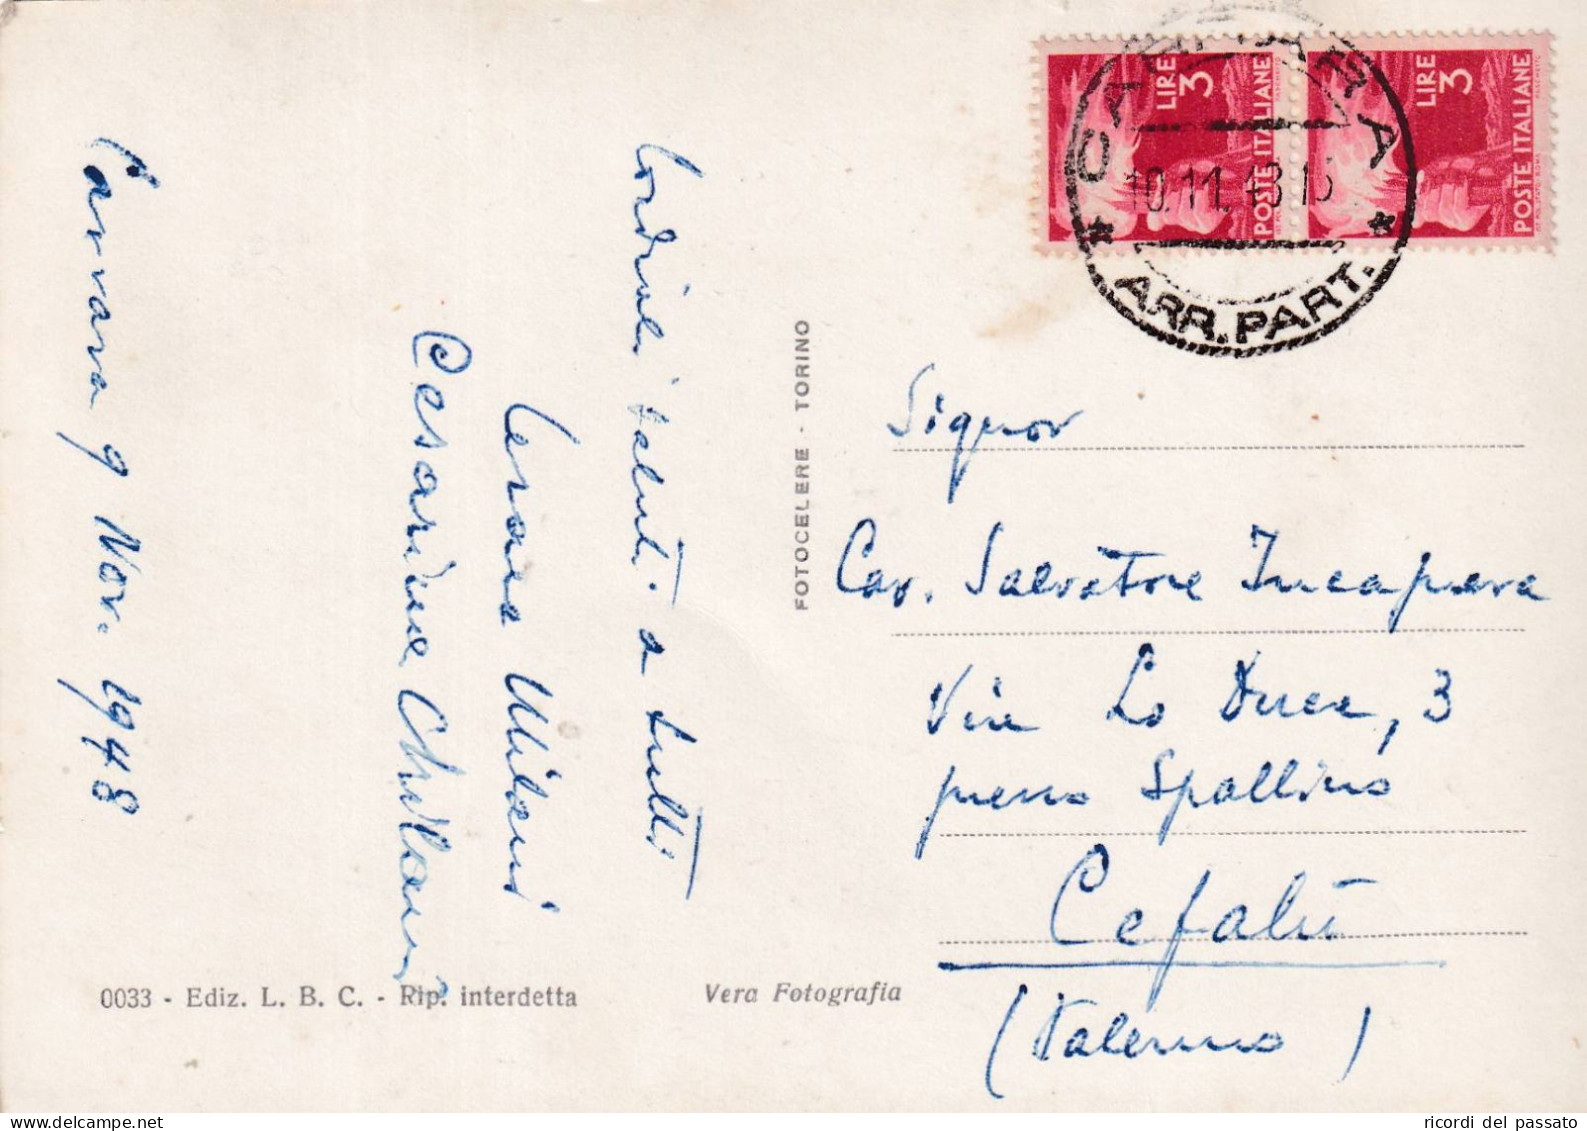 Carrara 9 Nov. 1948
Cordiali saluti a tutti
Milani
Cesarina
0033 - Ediz. L. B. C. - Rip. interdetta
Vera Fotografia
FOTOCELERE - TORINO
LIRE 3
POSTE ITALIANE
LIRE 3
POSTE ITALIANE
CARRARA
10.11.48.15
* ARR. PART. *
Signor
Cav. Salvatore Incaprera
Via Lo Duca, 3
presso Spallino
Cefalù
(Palermo)
ricordi del passato